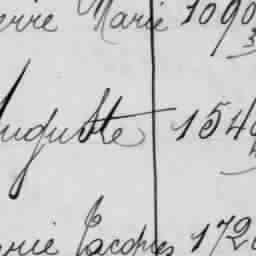 erre Marie 1090
Auguste 154
Jacques 172